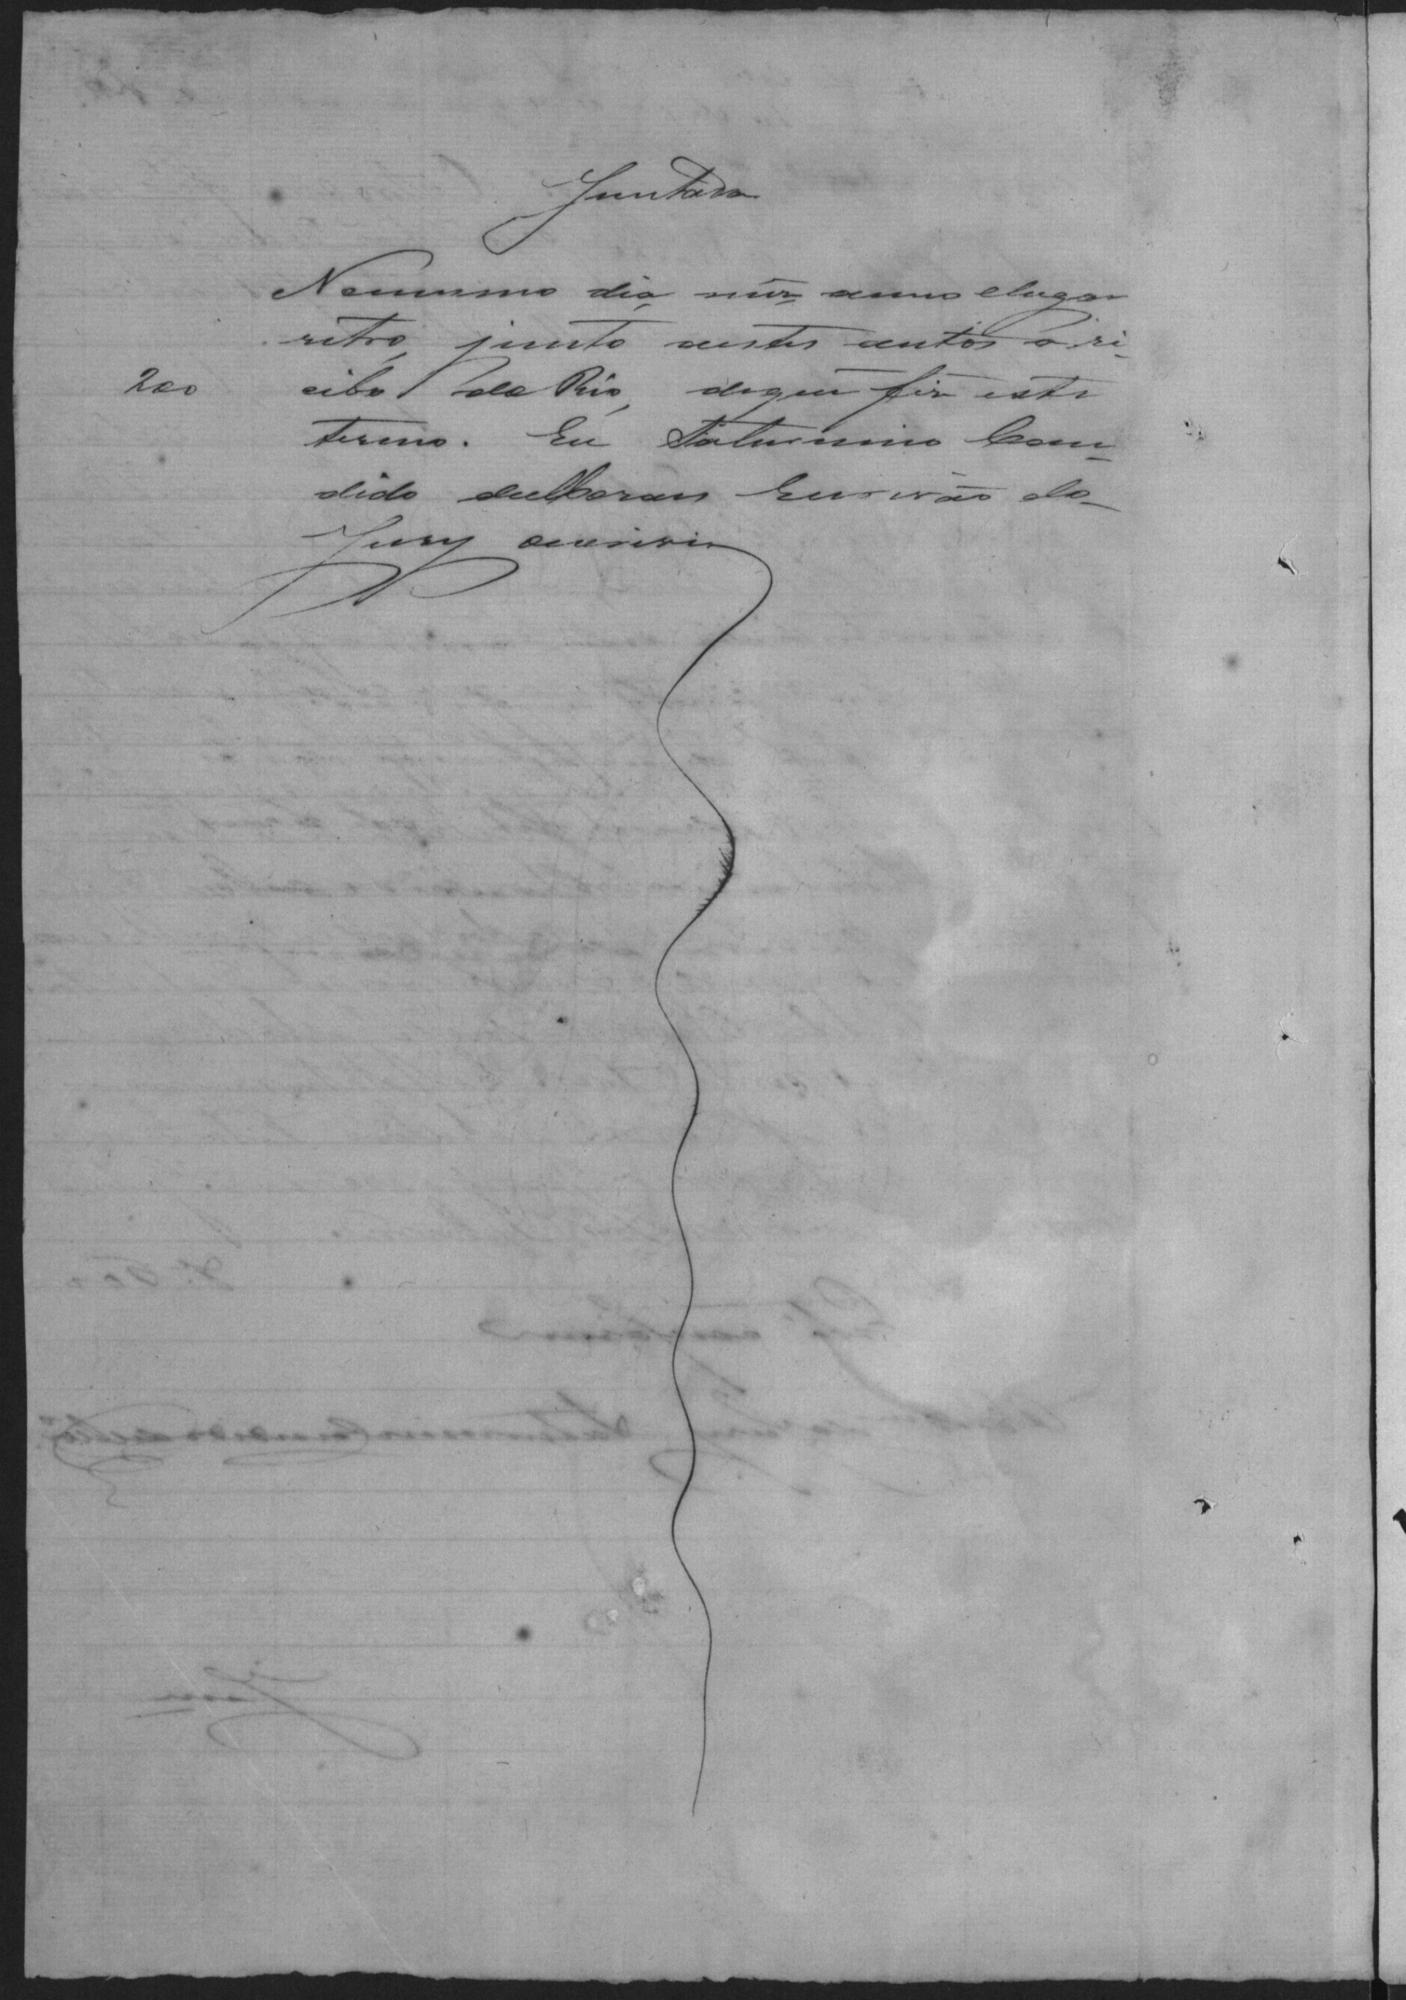 Juntada
No mesmo dia mez anno e lugar
retro, junto a estes autos o re-
200 cibo do Réo, de que fiz este
termo. Eu Saturnino Can-
dido de Moraes Escrivão do
Jury o escrivi